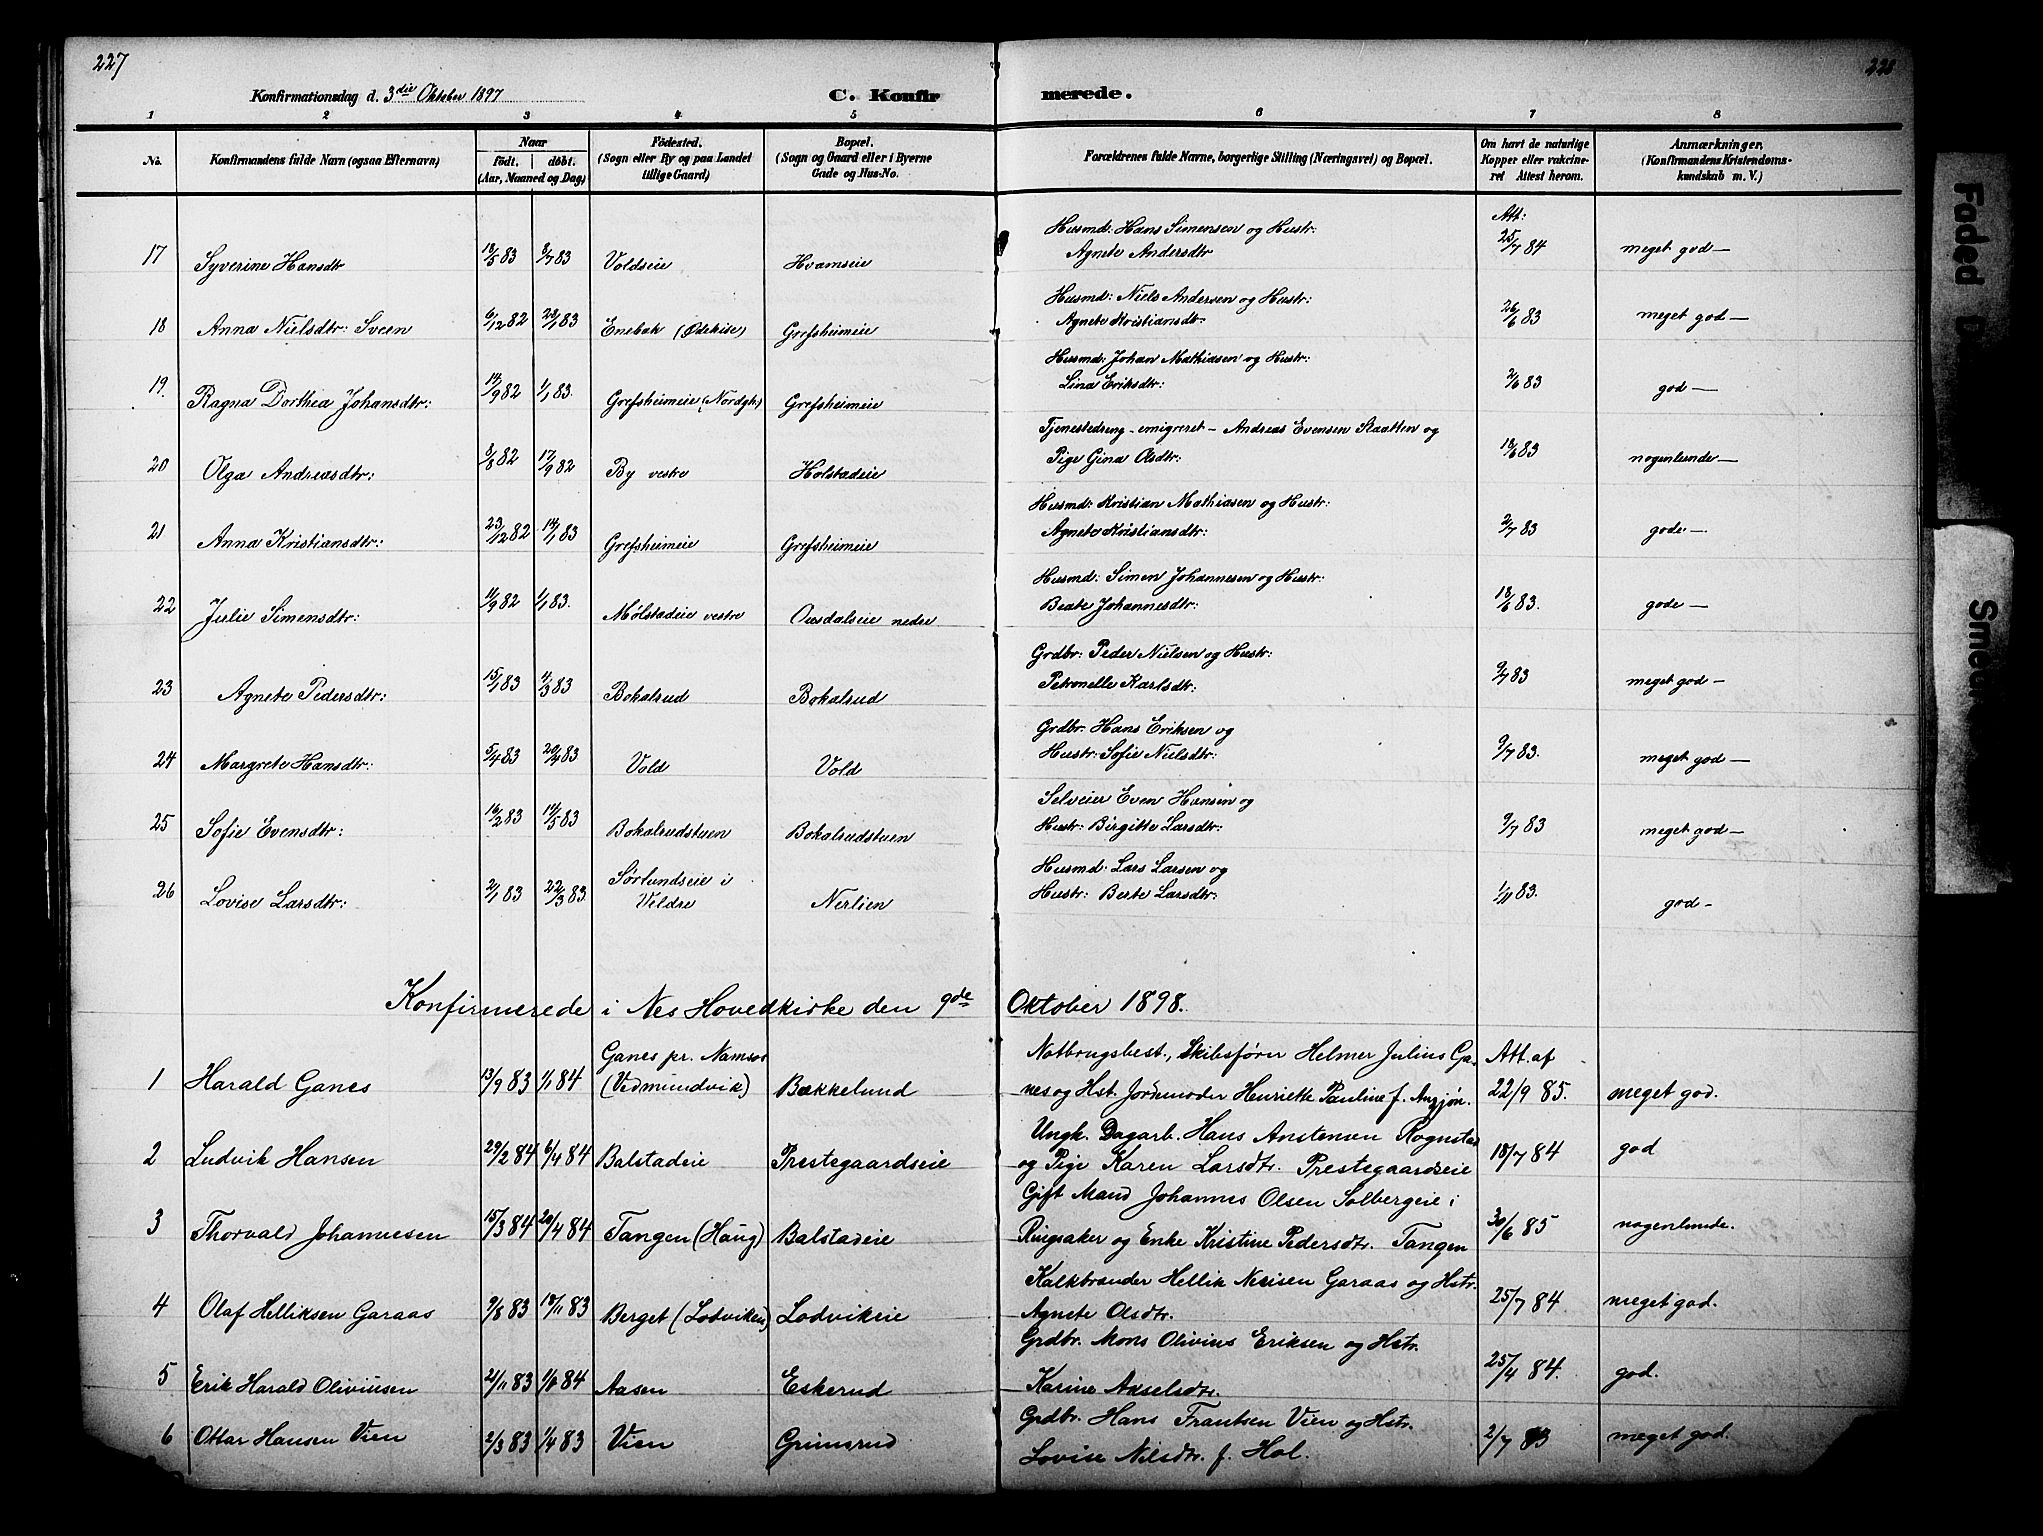 227
228
Konfirmationsdag d. 3die Oktober 1897
C. Konfir
merede.
1 2 3 4 5 6 7 8
No.
Konfirmandens fulde Navn (ogsaa Efternavn)
Naar
født. døbt.
(Aar, Maaned og Dag)
Fødested.
(Sogn eller By og paa Landet
tillige Gaard)
Bopæl.
(Sogn og Gaard eller i Byerne
Gade og Hus-No.
Forældrenes fulde Navne, borgerlige Stilling (Næringsvei) og Bopæl.
Om havt de naturlige
Kopper eller vakcine-
ret Attest herom.
Anmærkninger.
(Konfirmandens Kristendoms-
kundskab m. V.)
Husmd: Hans Simensen og Hustr: Att:
17 Syverine Hansdtr 18/5 83 8/7 83 Voldseie Hvamseie Agnete Andersdtr 25/7 84 meget god —
Husmd: Niels Andersen og Hustr:
18 Anna Nielsdtr: Sveen 6/12 82 28/1 83 Enebak (Ødekise) Grefsheimeie Agnete Kristiansdtr: 26/6 83 meget god —
Husmd: Johan Mathiasen og Hustr:
19. Ragna Dorthea Johansdtr: 14/9 82 1/1 83. Grefsheimeie (Nordgh.) Grefsheimeie Lina Eriksdtr: 2/6 83 god —
Tjenestedreng - emigreret - Andreas Evensen Staatten og
20 Olga Andreasdtr: 8/8 82 17/9 82 By vestre Holstadeie Pige Gina Olsdtr: 18/6 83 nogenlunde —
Husmd: Kristian Mathiasen og Hustr:
21 Anna Kristiansdtr: 23/12 82 14/1 83 Grefsheimeie Grefsheimeie Agnete Kristiansdtr: 2/7 83 gode —
Husmd: Simen Johannesen og Hustr:
22 Julie Simensdtr: 11/9 82 1/1 83. Mølstadeie vestre Ousdalseie nedre Beate Johannesdtr: 18/6 83. gode —
Grdbr: Peder Nielsen og Hustr:
23 Agnete Pedersdtr: 15/1 83 11/3 83 Bokalrud Bokalrud Petronelle Karlsdtr: 9/7 83 meget god —
Grdbr: Hans Eriksen og
24 Margrete Hansdtr: 5/4 83 29/4 83 Vold Vold Hustr: Sofie Nielsdtr: 9/7 83. meget god —
Selveier Even Hansen og
25 Sofie Evensdtr: 16/2 83 14/5 83 Bokalrudstuen Bokalrudstuen Hustr: Birgitte Larsdtr: 9/7 83 meget god —
Sørlundseie i Husmd: Lars Larsen og
26 Lovise Larsdtr: 2/1 83 22/3 83. Veldre Nerlien Hustr: Berte Larsdtr: 1/11 83. god -
Konfirmerede i Nes Hovedkirke den 9de Oktober 1898.
Ganes pr. Namsos Notbrugsbest., Skibsfører Helmer Julius Ga- Att. af
1 Harald Ganes 13/9 83 1/1 84 (Vedmundvik) Bækkelund nes og Hst. Jordemoder Henriette Pauline f. 22/9 85. meget god.
Ungk. Dagarb. Hans Anstensen Rognstad
2 Ludvik Hansen 29/2 84 6/4 84 Balstadeie Prestegaardseie og Pige Karen Larsdtr. Prestegaardseie 18/7 84 god
Gift Mand Johannes Olsen Solbergeie i
3 Thorvald Johannesen 15/3 84 20/4 84 Tangen (Haug) Balstadeie Ringsaker og Enke Kristine Pedersdtr. Tangen 30/6 85 nogenlunde.
Kalkbrænder Hellik Garaas og Hstr.
4 Olaf Helliksen Garaas 9/8 83 18/11 83 Berget (Lodviken) Lodvikeie Agnete Olsdtr. 25/7 84 meget god.
Grdbr. Mons Olivius Eriksen og Hstr.
5 Erik Harald Oliviusen 21/11 83 84 Aasen Eskerud Karine Akselsdtr. 25/4 84. god.
Grdbr. Hans Frantsen Vien og Hstr.
6 Ottar Hansen Vien 2/3 83 1/4 83 Vien Grimsrud Lovise Nilsdtr. f. Hol. 2/7 83 meget god.
Faded